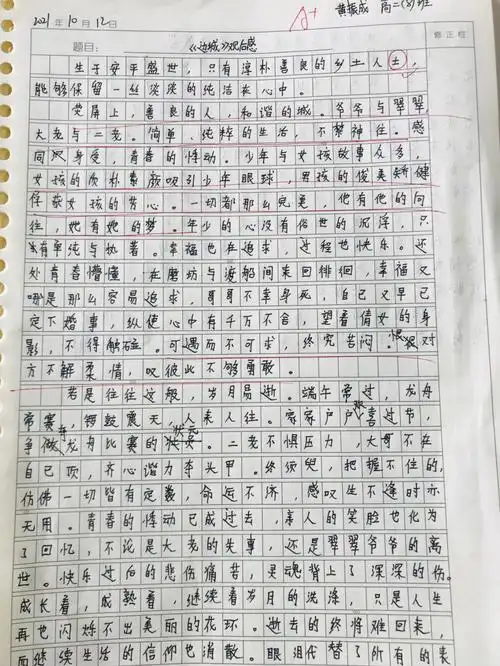 A+
黄振成 高二(8)班
2021年10月12日
修正栏
题目: 《边城》观后感
生于安平盛世,只有淳朴善良的乡土人士,
能够保留一丝淡淡的纯洁在心中。
荧屏上,善良的人,和谐的城。爷爷与翠翠
大老与二老。简单、纯粹的生活,不禁神往。感
同身受,青春的悸动。少年与女孩故事众多,
女孩的质朴素颜吸引少年眼球,男孩的俊美矫健
俘获女孩的芳心。一切都那么完美,他有他的向
往,她有她的梦。年少的心没有俗世的沉浮,只
有单纯与执著。幸福也在追求,过程也快乐。还
处青春懵懂,在磨坊与渡船间来回徘徊,幸福又
哪是那么容易追求,哥哥不幸身死,自己又早已
定下婚事,纵使心中有千万不舍,望着倩女的身
影,不得触碰。可遇而不可求,终究苦闷。恨对
方不解柔情,叹彼此不够勇敢。
若是往往这般,岁月易逝。端午常过,龙舟
常赛,锣鼓震天,人来人往。家家户户喜过节,
争做龙舟比赛的状元。二老不惧压力,大哥不在
自己顶,齐心谐力夺头甲。终须兕,把握不住的,
仿佛一切皆有定数,命运不济,感叹生不逢时亦
无用。青春的悸动已成过去,亲人的笑脸也化为
了回忆,不论是大老的失事,还是翠翠爷爷的离
世。快乐过后的悲伤痛苦,灵魂背上了深深的伤。
成长着,成熟着,继续着岁月的洗涤,只是人生
再也闪烁不出美丽的花环。逝去的终将难回来,
而继续生活的信仰也消散。眼泪代替了所有的表